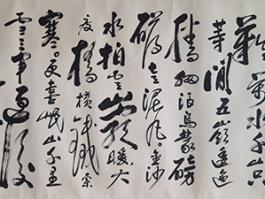 難萬水千山只
等閒五嶺逶迤
騰細浪烏蒙磅
礴走泥丸金沙
水拍雲崖暖大
渡橋橫鐵索
寒更喜岷山千里
雪三軍過後